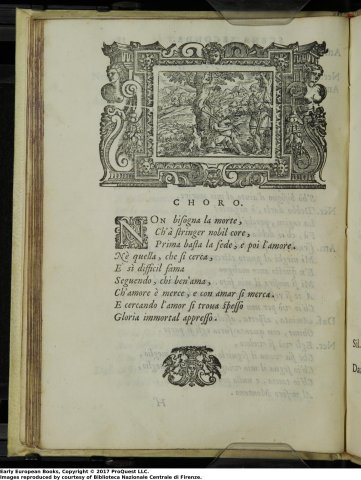 CHORO.
NON bisogna la morte,
Ch'à stringer nobil core,
Prima basta la fede, e poi l'amore.
Nè quella, che si cerca,
E sì difficil fama
Seguendo, chi ben'ama,
Ch'amore è merce, e con amar si merca.
E cercando l'amor si troua spesso
Gloria immortal appresso.
H
Sil.
Da
Early European Books, Copyright © 2017 ProQuest LLC.
Images reproduced by courtesy of Biblioteca Nazionale Centrale di Firenze.